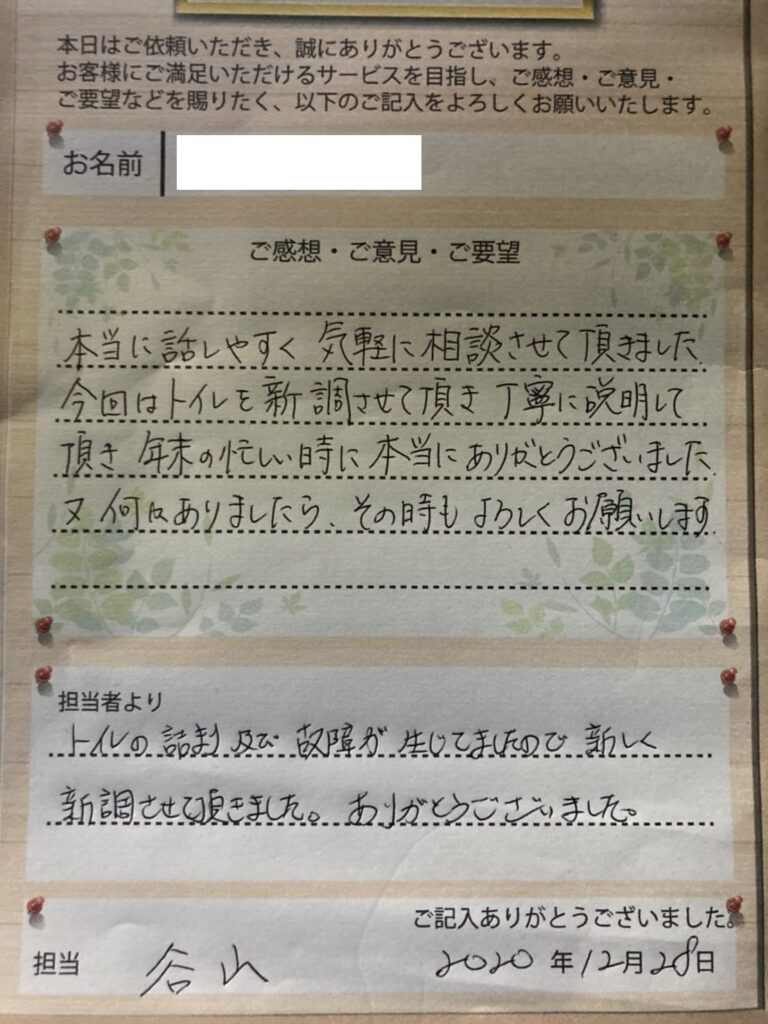 本日はご依頼いただき、誠にありがとうございます。
お客様にご満足いただけるサービスを目指し、ご感想・ご意見・
ご要望などを賜りたく、以下のご記入をよろしくお願いいたします。
お名前
ご感想・ご意見・ご要望
本当に話しやすく 気軽に相談させて頂きました
今回はトイレを新調させて頂き 丁寧に説明して
頂き 年末の忙しい時に本当にありがとうございました
又 何かありましたら、その時もよろしくお願いします
担当者より
トイレの詰まり及び故障が生じてましたので新しく
新調させて頂きました。ありがとうございました。
ご記入ありがとうございました。
担当 谷山 2020年12月28日